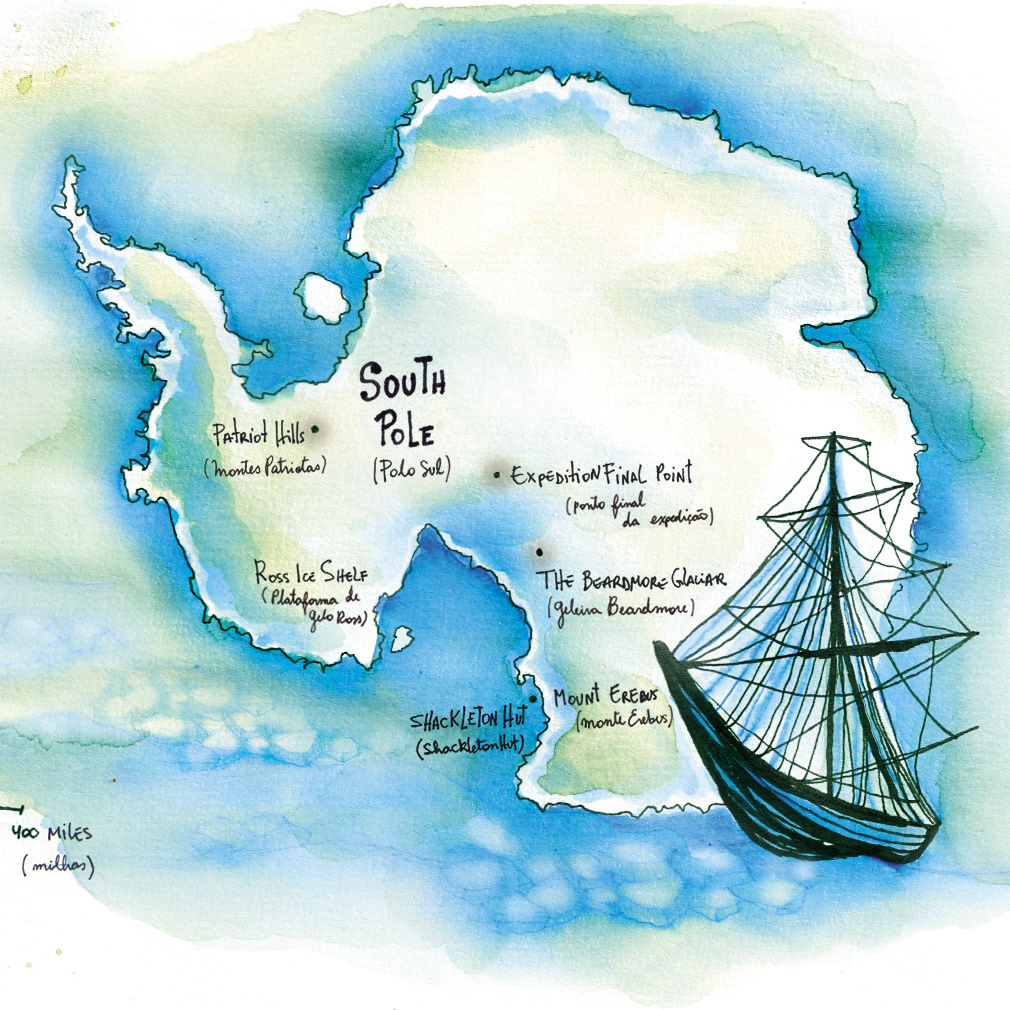 South
Pole
(Polo Sul)
Patriot Hills
(montes Patriotas)
Expedition Final Point
(ponto final
da expedição)
The Beardmore Glaciar
(geleira Beardmore)
Ross Ice Shelf
(Plataforma de
gelo Ross)
Mount Erebus
(monte Erebus)
Shackleton Hut
(Shackleton Hut)
400 Miles
(milhas)